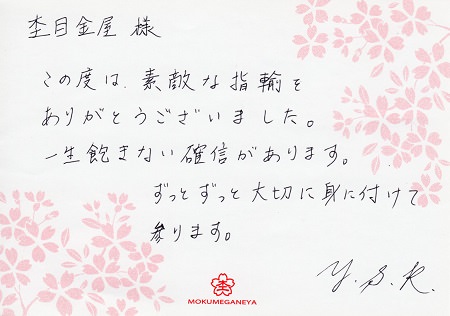 杢目金屋 様
この度は、素敵な指輪を
ありがとうございました。
一生飽きない確信があります。
ずっとずっと大切に身に付けて
参ります。
Y.S.K.
杢
MOKUMEGANEYA